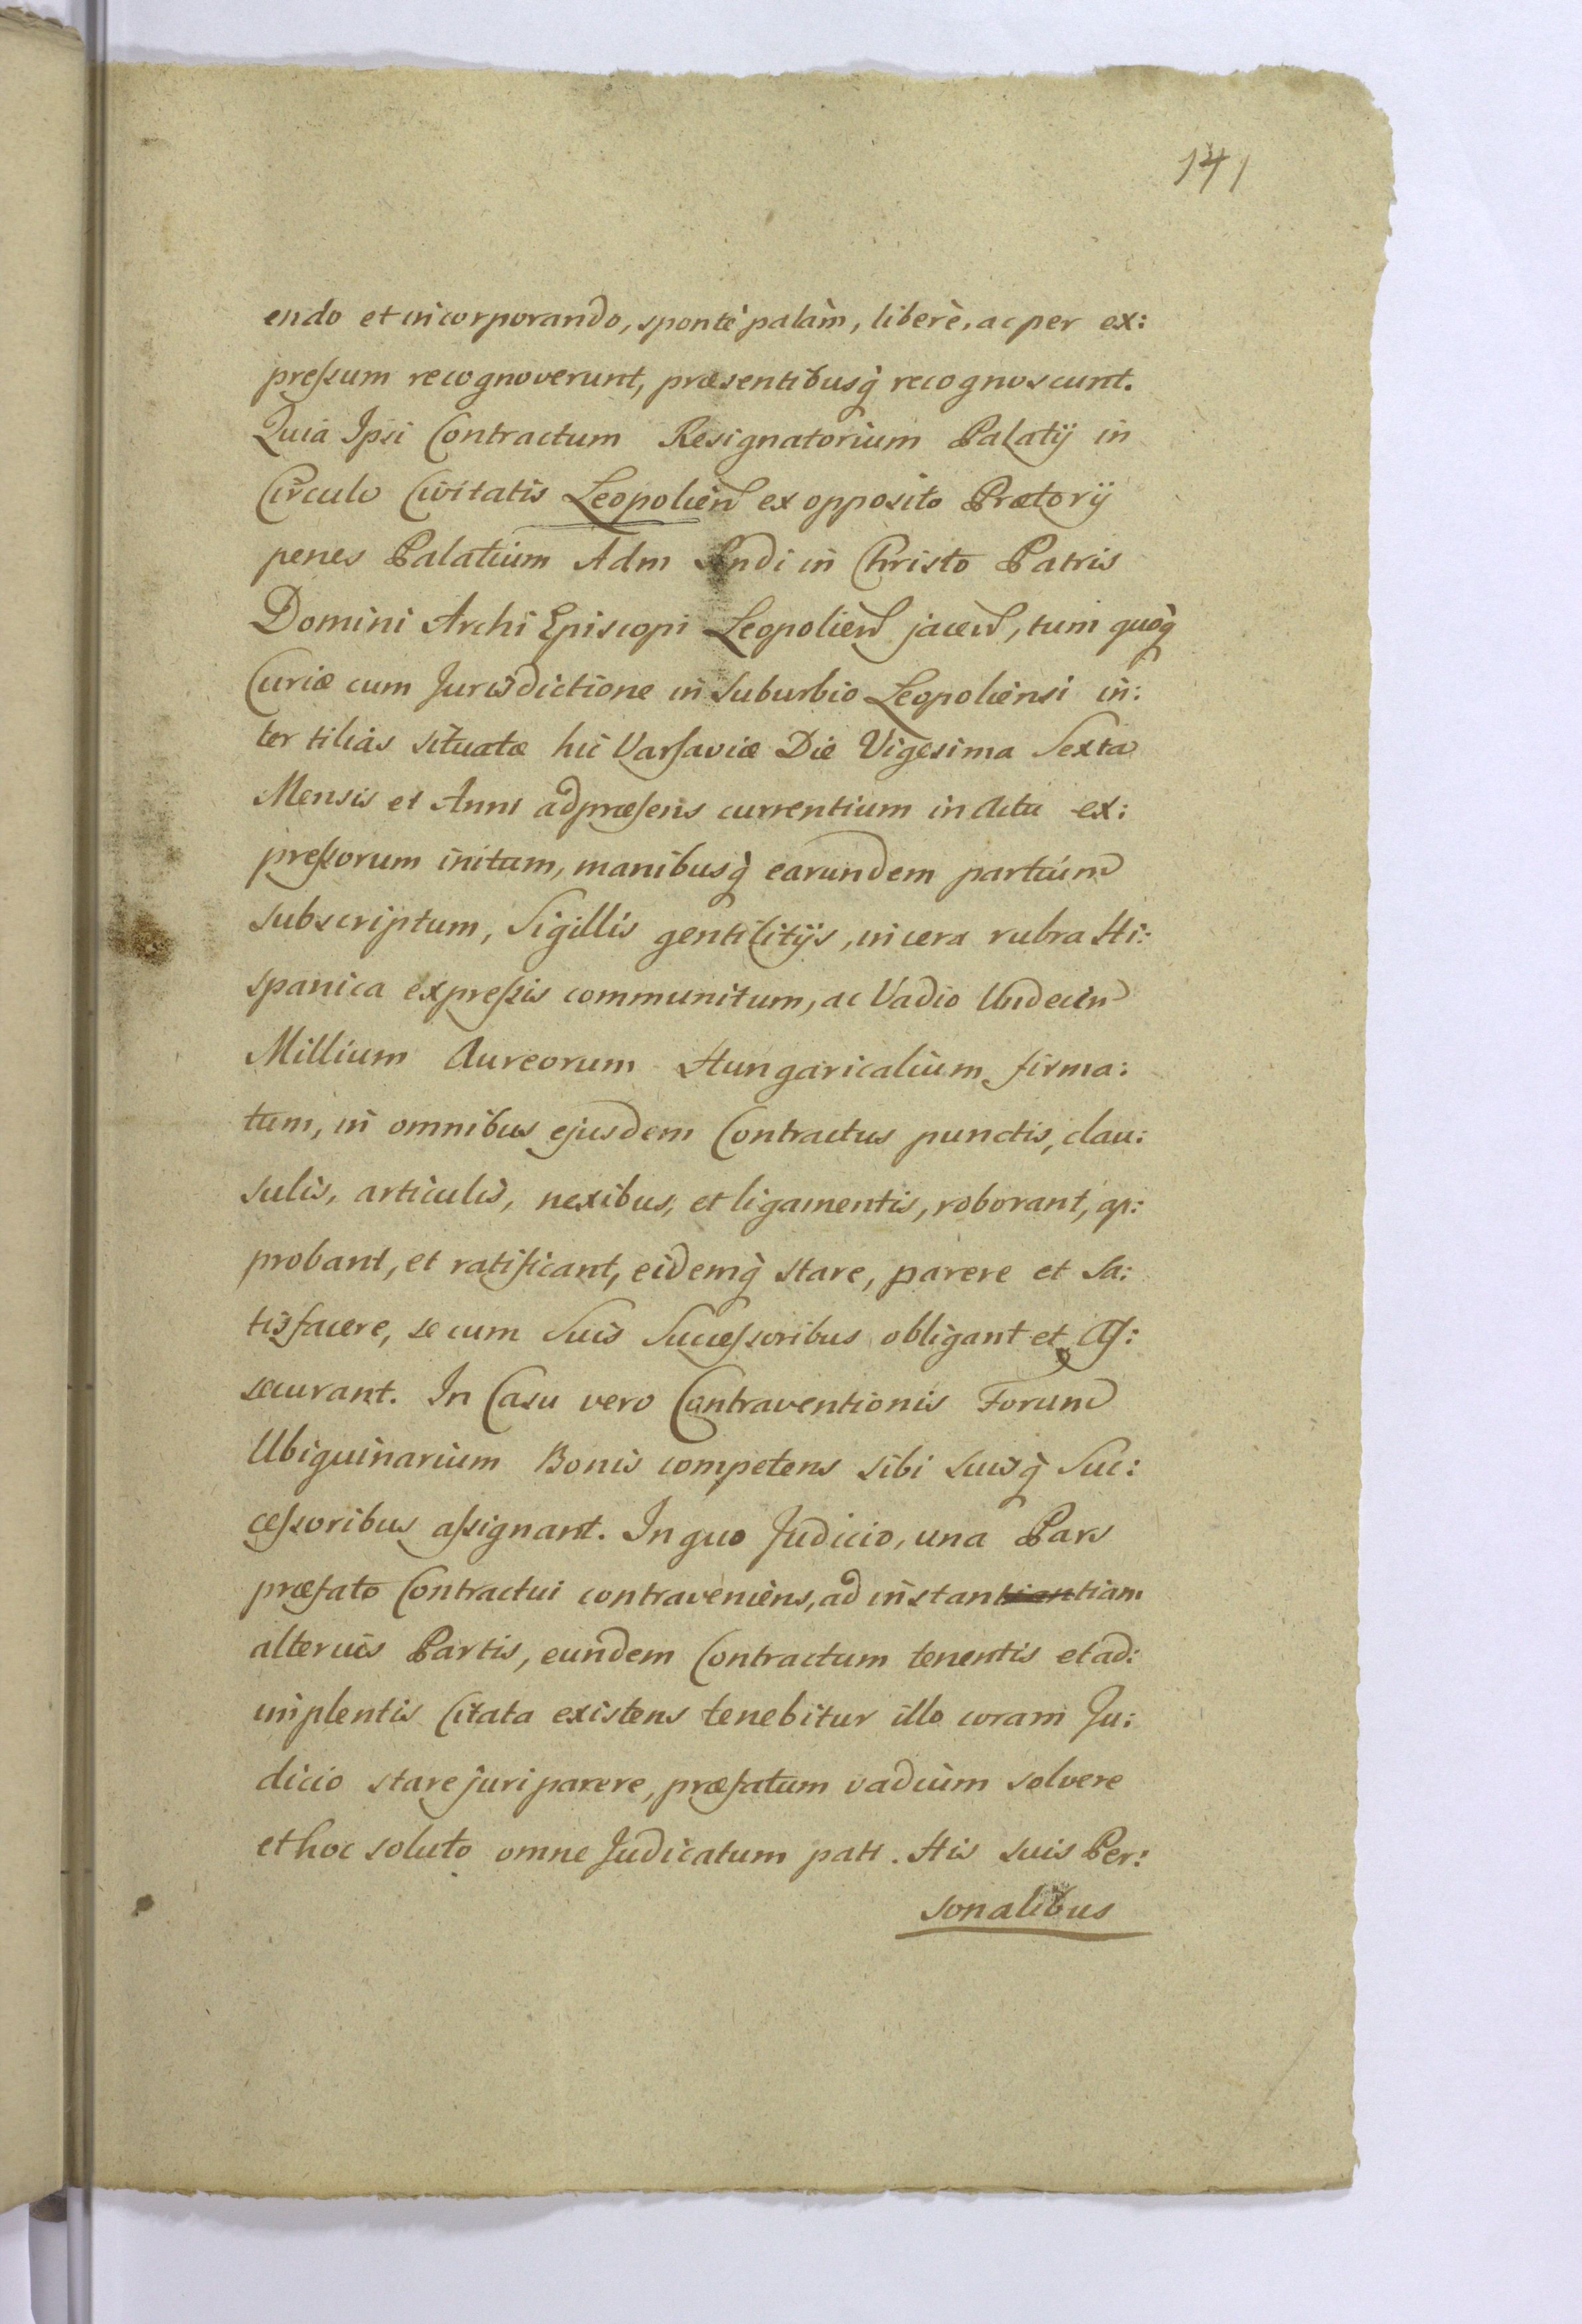 141
endo et incorporando, spontè palàm, liberè, ac per ex:
preſsum recognoverunt, præsentibusq̀ recognoscunt.
Quia Ipsi Contractum Resignatorium Palatij in
Circulo Civitatis Leopolien ex opposito Prætorij
penes Palatium Adm Rndi in Christo Patris
Domini Archi Episcopi Leopolien jacen, tum quoq̀
Curiæ cum Jurisdictione in Suburbio Leopoliensi in:
ter tilias situatæ hic Varſaviæ Die Vigesima Sexta
Mensis et Anni ad præſens currentium in Actu ex:
preſsorum initam, manibusq̀ earundem partium
subscriptum, Sigillis gentilitijs, in cera rubra Hi:
spanica expreſsis communitum, ac Vadio Undecim
Millium Aureorum Hungaricalium firma:
tum, in omnibus ejusdem Contractus punctis, clau:
sulis, articulis, nexibus, et ligamentis, roborant, ap:
probant, et ratificant, eidemq̀ stare, parere et Sa:
tisfacere, se cum Suis Succeſsoribus obligant et Aſ:
securant. In Casu vero Contraventionis Forum
Ubiquinarium Bonis competens sibi suisq̀ Suc:
ceſsoribus aſsignant. In quo Judicio, una Pars
præfato Contractui contraveniens, ad instantiantiam
alterius Partis, eundem Contractum tenentis et ad:
implentis Citata existens tenebitur illo coram Ju:
dicio stare juri parere, præfatum vadium solvere
et hoc soluto omne Judicatum pati. His suis Per:
sonalibus